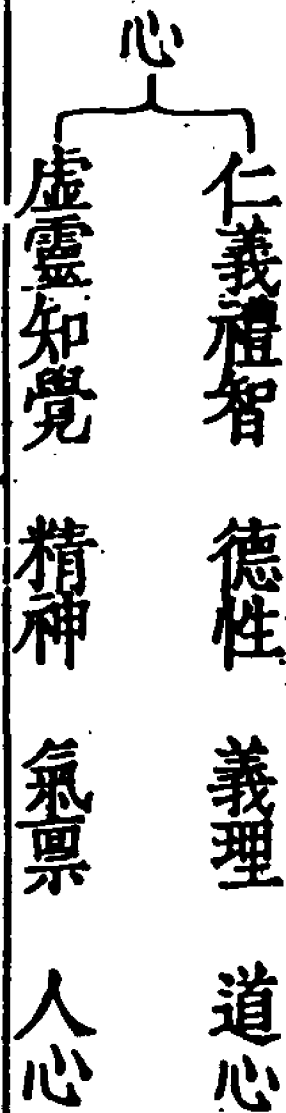 心
仁義禮智 德性 義理 道心
虛靈知覺 精神 氣禀 人心